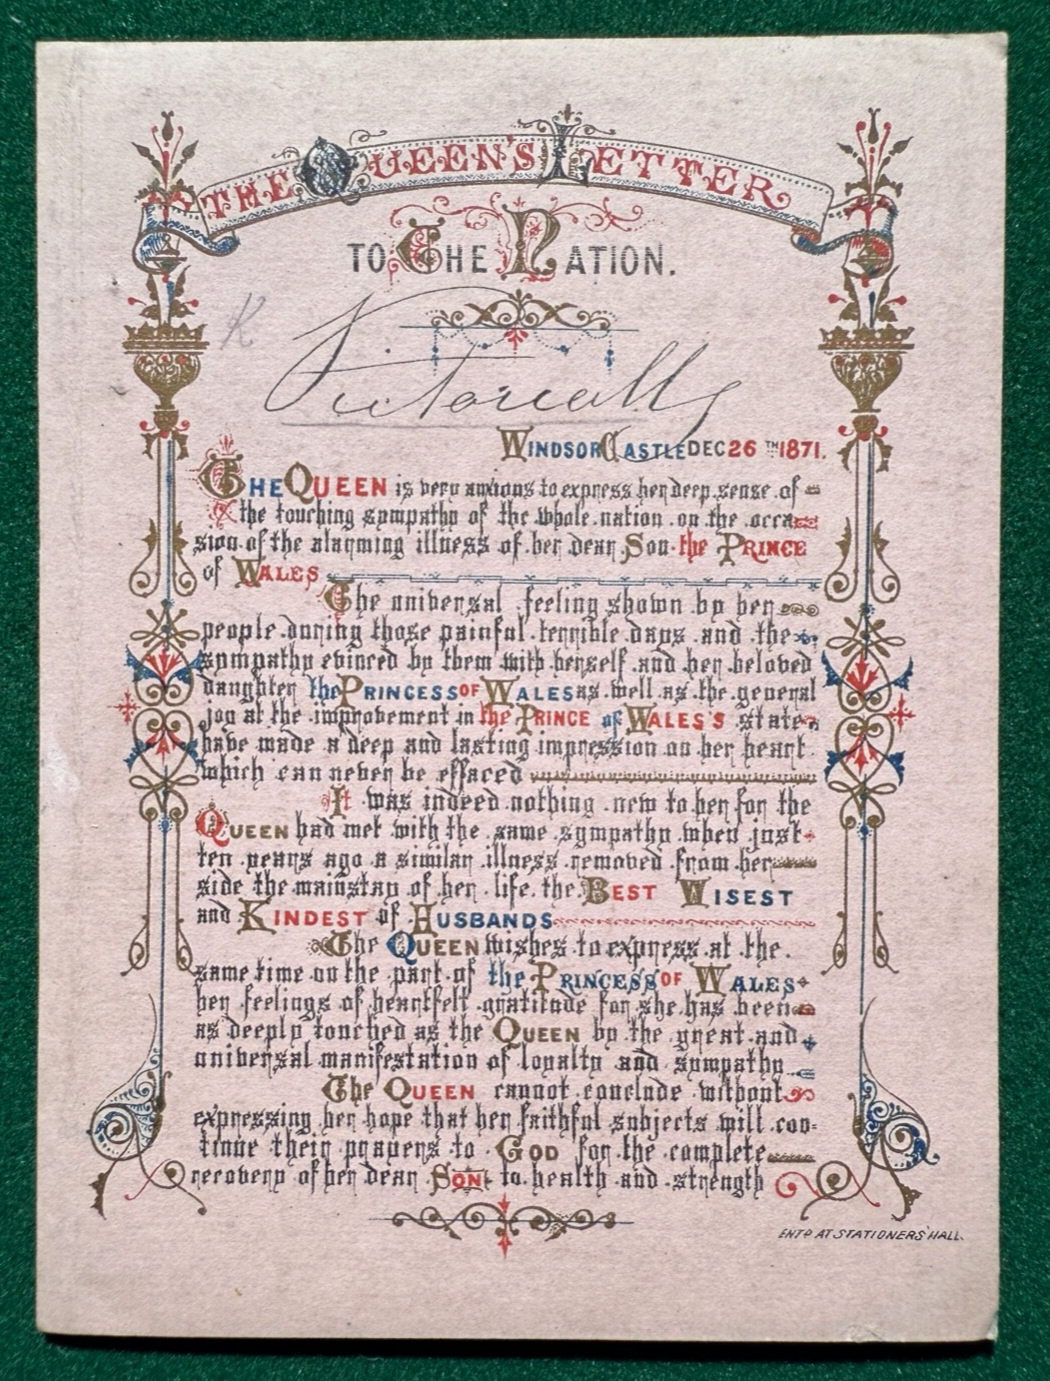 THE QUEEN'S LETTER
TO THE NATION.
K
Victoria
WINDSOR CASTLE DEC 26TH 1871.
THE QUEEN is very anxious to express her deep sense of
the touching sympathy of the whole nation on the occa
sion of the alarming illness of her dear Son the PRINCE
of WALES
The universal feeling shown by her
people during those painful terrible days and the
sympathy evinced by them with herself and her beloved
daughter the PRINCESS OF WALES as well as the general
joy at the improvement in the PRINCE of WALES'S state
have made a deep and lasting impression on her heart
which can never be effaced
It was indeed nothing new to her for the
QUEEN had met with the same sympathy when just
ten years ago a similar illness removed from her
side the mainstay of her life the BEST WISEST
and KINDEST of HUSBANDS
The QUEEN wishes to express at the
same time on the part of the PRINCESS OF WALES
her feelings of heartfelt gratitude for she has been
as deeply touched as the QUEEN by the great and
universal manifestation of loyalty and sympathy
The QUEEN cannot conclude without
expressing her hope that her faithful subjects will con=
tinue their prayers to GOD for the complete
recovery of her dear SON to health and strength
ENTD AT STATIONERS' HALL.